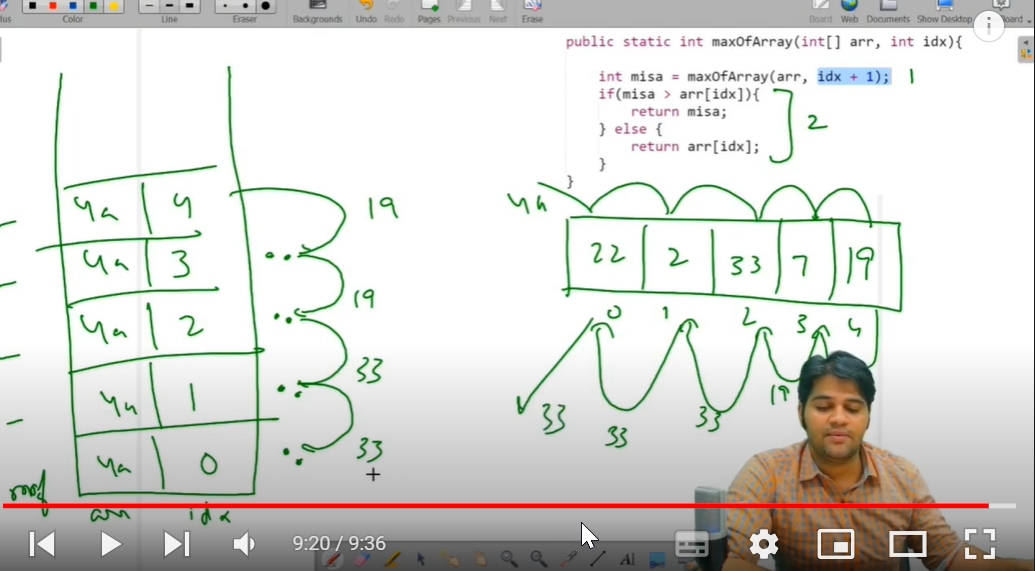 Color
Line
Eraser
Backgrounds
Undo
Redo
Pages
Previous
Next
Erase
Board
Web
Documents
Show Desktop
Board
public static int maxOfArray(int[] arr, int idx){
int misa = maxOfArray(arr, idx + 1); 1
if(misa > arr[idx]){
return misa;
} else {
return arr[idx];
}
}
2
4k
22 2 33 7 19
0 1 2 3 4
33 33 33 19
4k 4
4k 3
4k 2
4k 1
4k 0
arr idx
19
19
33
33
9:20 / 9:36